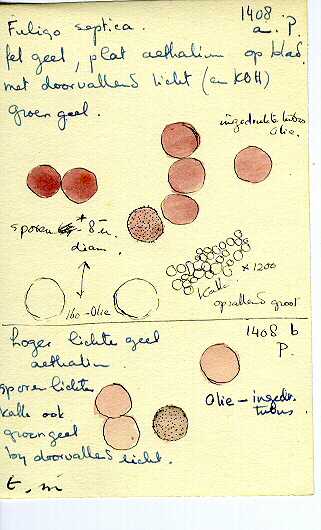 Fuligo septica.
1408
a. P.
fel geel, plat aethalium op blad.
met doorvallend licht (en KOH)
groen geel.
ingedrukte tubus
olie.
sporen ± 8 u.
diam.
Kalk × 1200
opvallend groot
ibo - Olie
1408 b
P.
Hoger lichte geel
aethalium.
sporen lichter
kalk ook
groengeel
by doorvallend licht.
Olie - ingedr.
tubus.
t. m